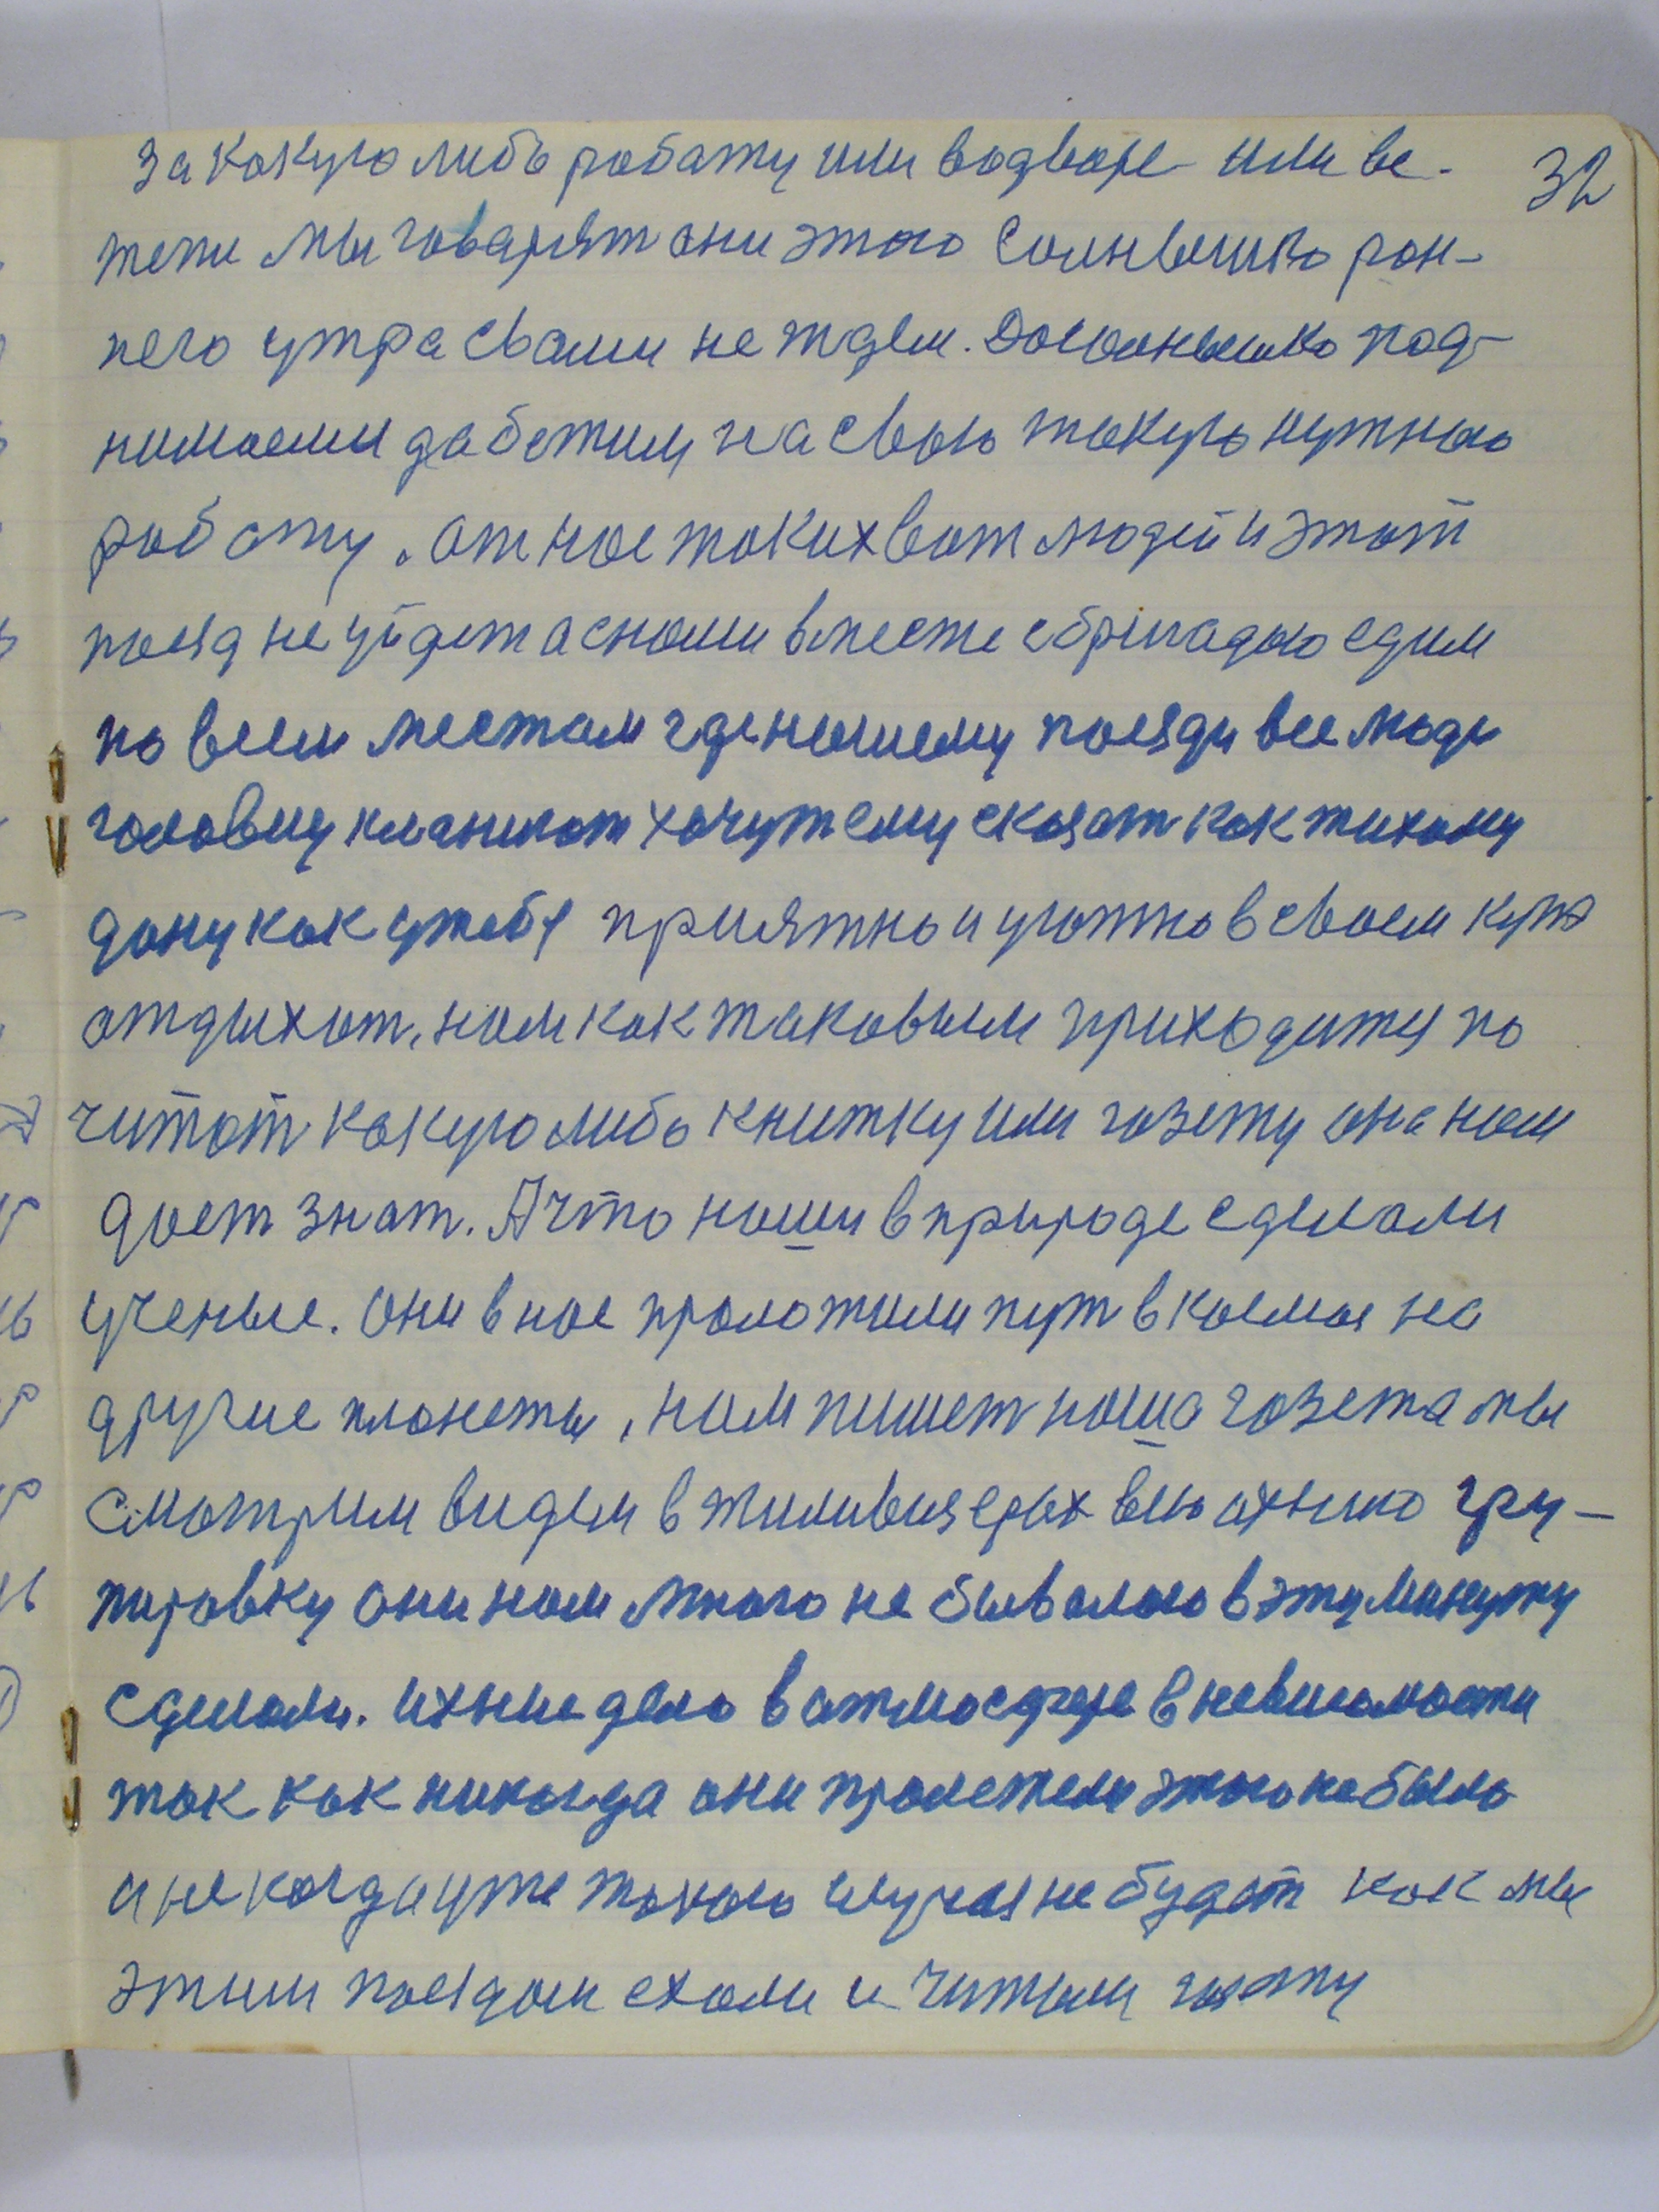 32
за какуюлибо работу или водворе или ве-
тепи мы говарят они этого солнышко ран-
него утра свами не ждем. Досолнышко под-
нимаеми да бежим на свою такую нужною
работу. от нас таких вот людей и этот
поезд не уйдет а снами вместе с бригадою едим
по всем местам где нашему поезду все люди
головму кланиют хочут ему сказат как тихому
дону как у тебе приятно и уютно в своем купэ
отдыхат, нам как таковым приходится по
читат какуюлибо книжку или газету она нам
дает знат. А что наши в природе сделали
ученые. они в нас проложили пут в космос на
другие планеты, нам пишет наша газета мы
смотрим видем в тиливизерах всю ихнию гру-
пировку они нам много не бывалого в эту минуту
сделали. ихние дело в атмосфере в невисомости
так как никогда они пролетели этого не было
и не когда уже такого случая не будет как мы
этим поездом ехали и читали газету